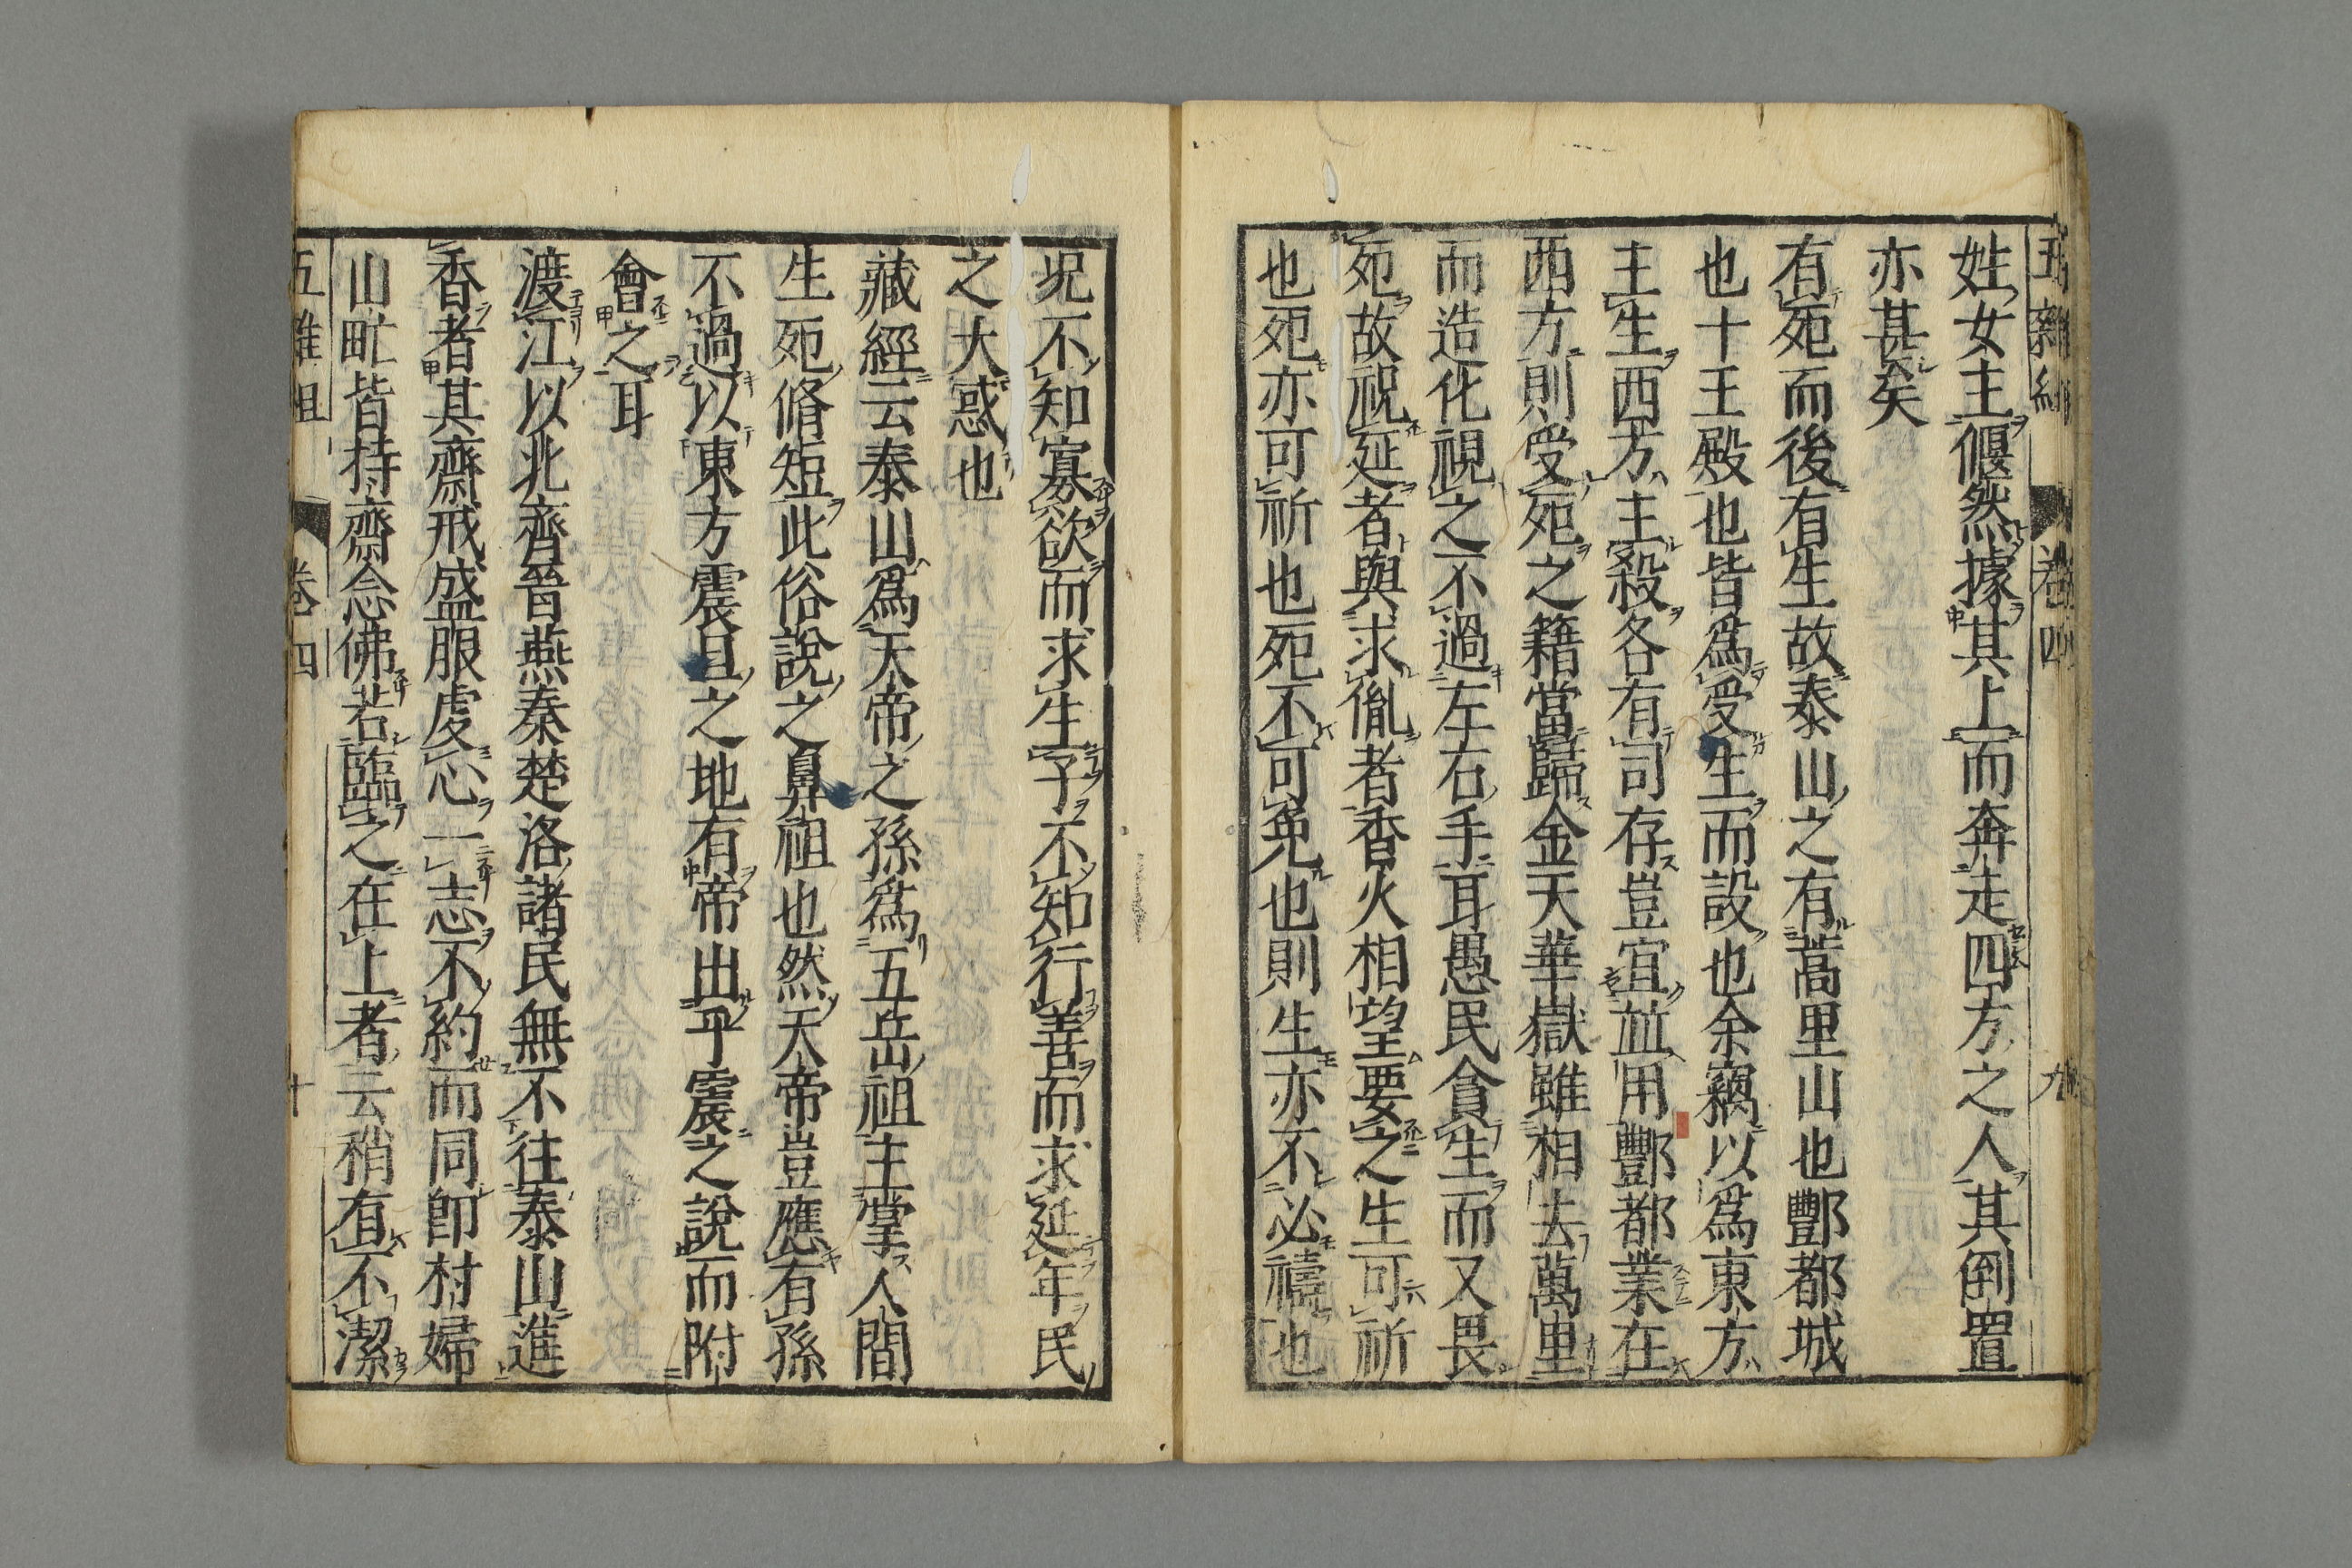 姓女主偃然據其上而奔走四方之人其倒置
亦甚矣
有死而後有生故泰山之有蒿里山也酆都城
也十王殿也皆爲受生而設也余竊以爲東方
主生西方主殺各有司存豈宜並用酆都業在
西方則受死之籍當歸金天華嶽雖相去萬里
而造化視之不過左右手耳愚民貪生而又畏
死故祝延者與求胤者香火相望要之生可祈
也死亦可祈也死不可免也則生亦不必禱也
况不知寡欲而求生子不知行善而求延年民
之大惑也
藏經云泰山爲天帝之孫爲五岳祖主掌人間
生死脩短此俗說之鼻祖也然天帝豈應有孫
不過以東方震旦之地有帝出乎震之說而附
會之耳
渡江以北齊晉燕秦楚洛諸民無不往泰山進
香者其齋戒盛服虔心一志不約而同卽村婦
山甿皆持齋念佛若臨之在上者云稍有不潔
五雜組
卷四
十